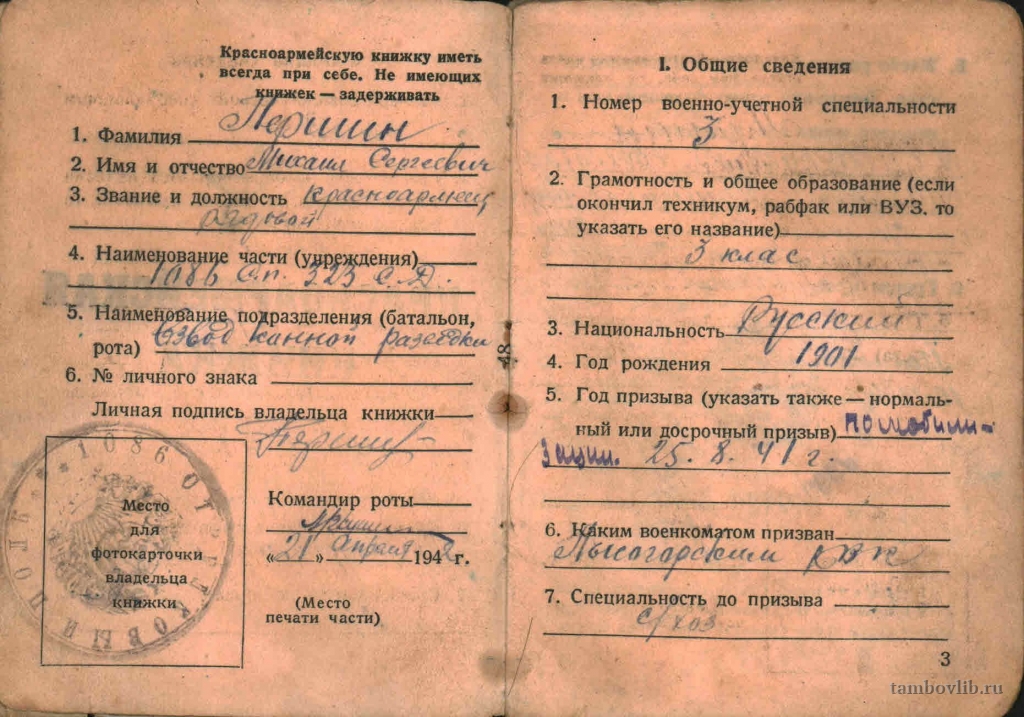 Красноармейскую книжку иметь
всегда при себе. Не имеющих
книжек — задерживать
1. Фамилия Першин
2. Имя и отчество Михаил Сергеевич
3. Звание и должность красноармеец
рядовой
4. Наименование части (учреждения)
1086 с.п. 323 С.Д.
5. Наименование подразделения (батальон,
рота) взвод конной разведки
6. № личного знака
Личная подпись владельца книжки
Першин
Место
для
фотокарточки
владельца
книжки
1086 СТРЕЛКОВЫЙ ПОЛК
Командир роты
«21» апреля 1942 г.
(Место
печати части)
48
I. Общие сведения
1. Номер военно-учетной специальности
3
2. Грамотность и общее образование (если
окончил техникум, рабфак или ВУЗ. то
указать его название)
3 клас
3. Национальность Русский
4. Год рождения 1901
5. Год призыва (указать также — нормаль-
ный или досрочный призыв) По мобили-
зации. 25.8.41 г.
6. Каким военкоматом призван
Лысогорским РВК
7. Специальность до призыва
с/хоз
3
tambovlib.ru